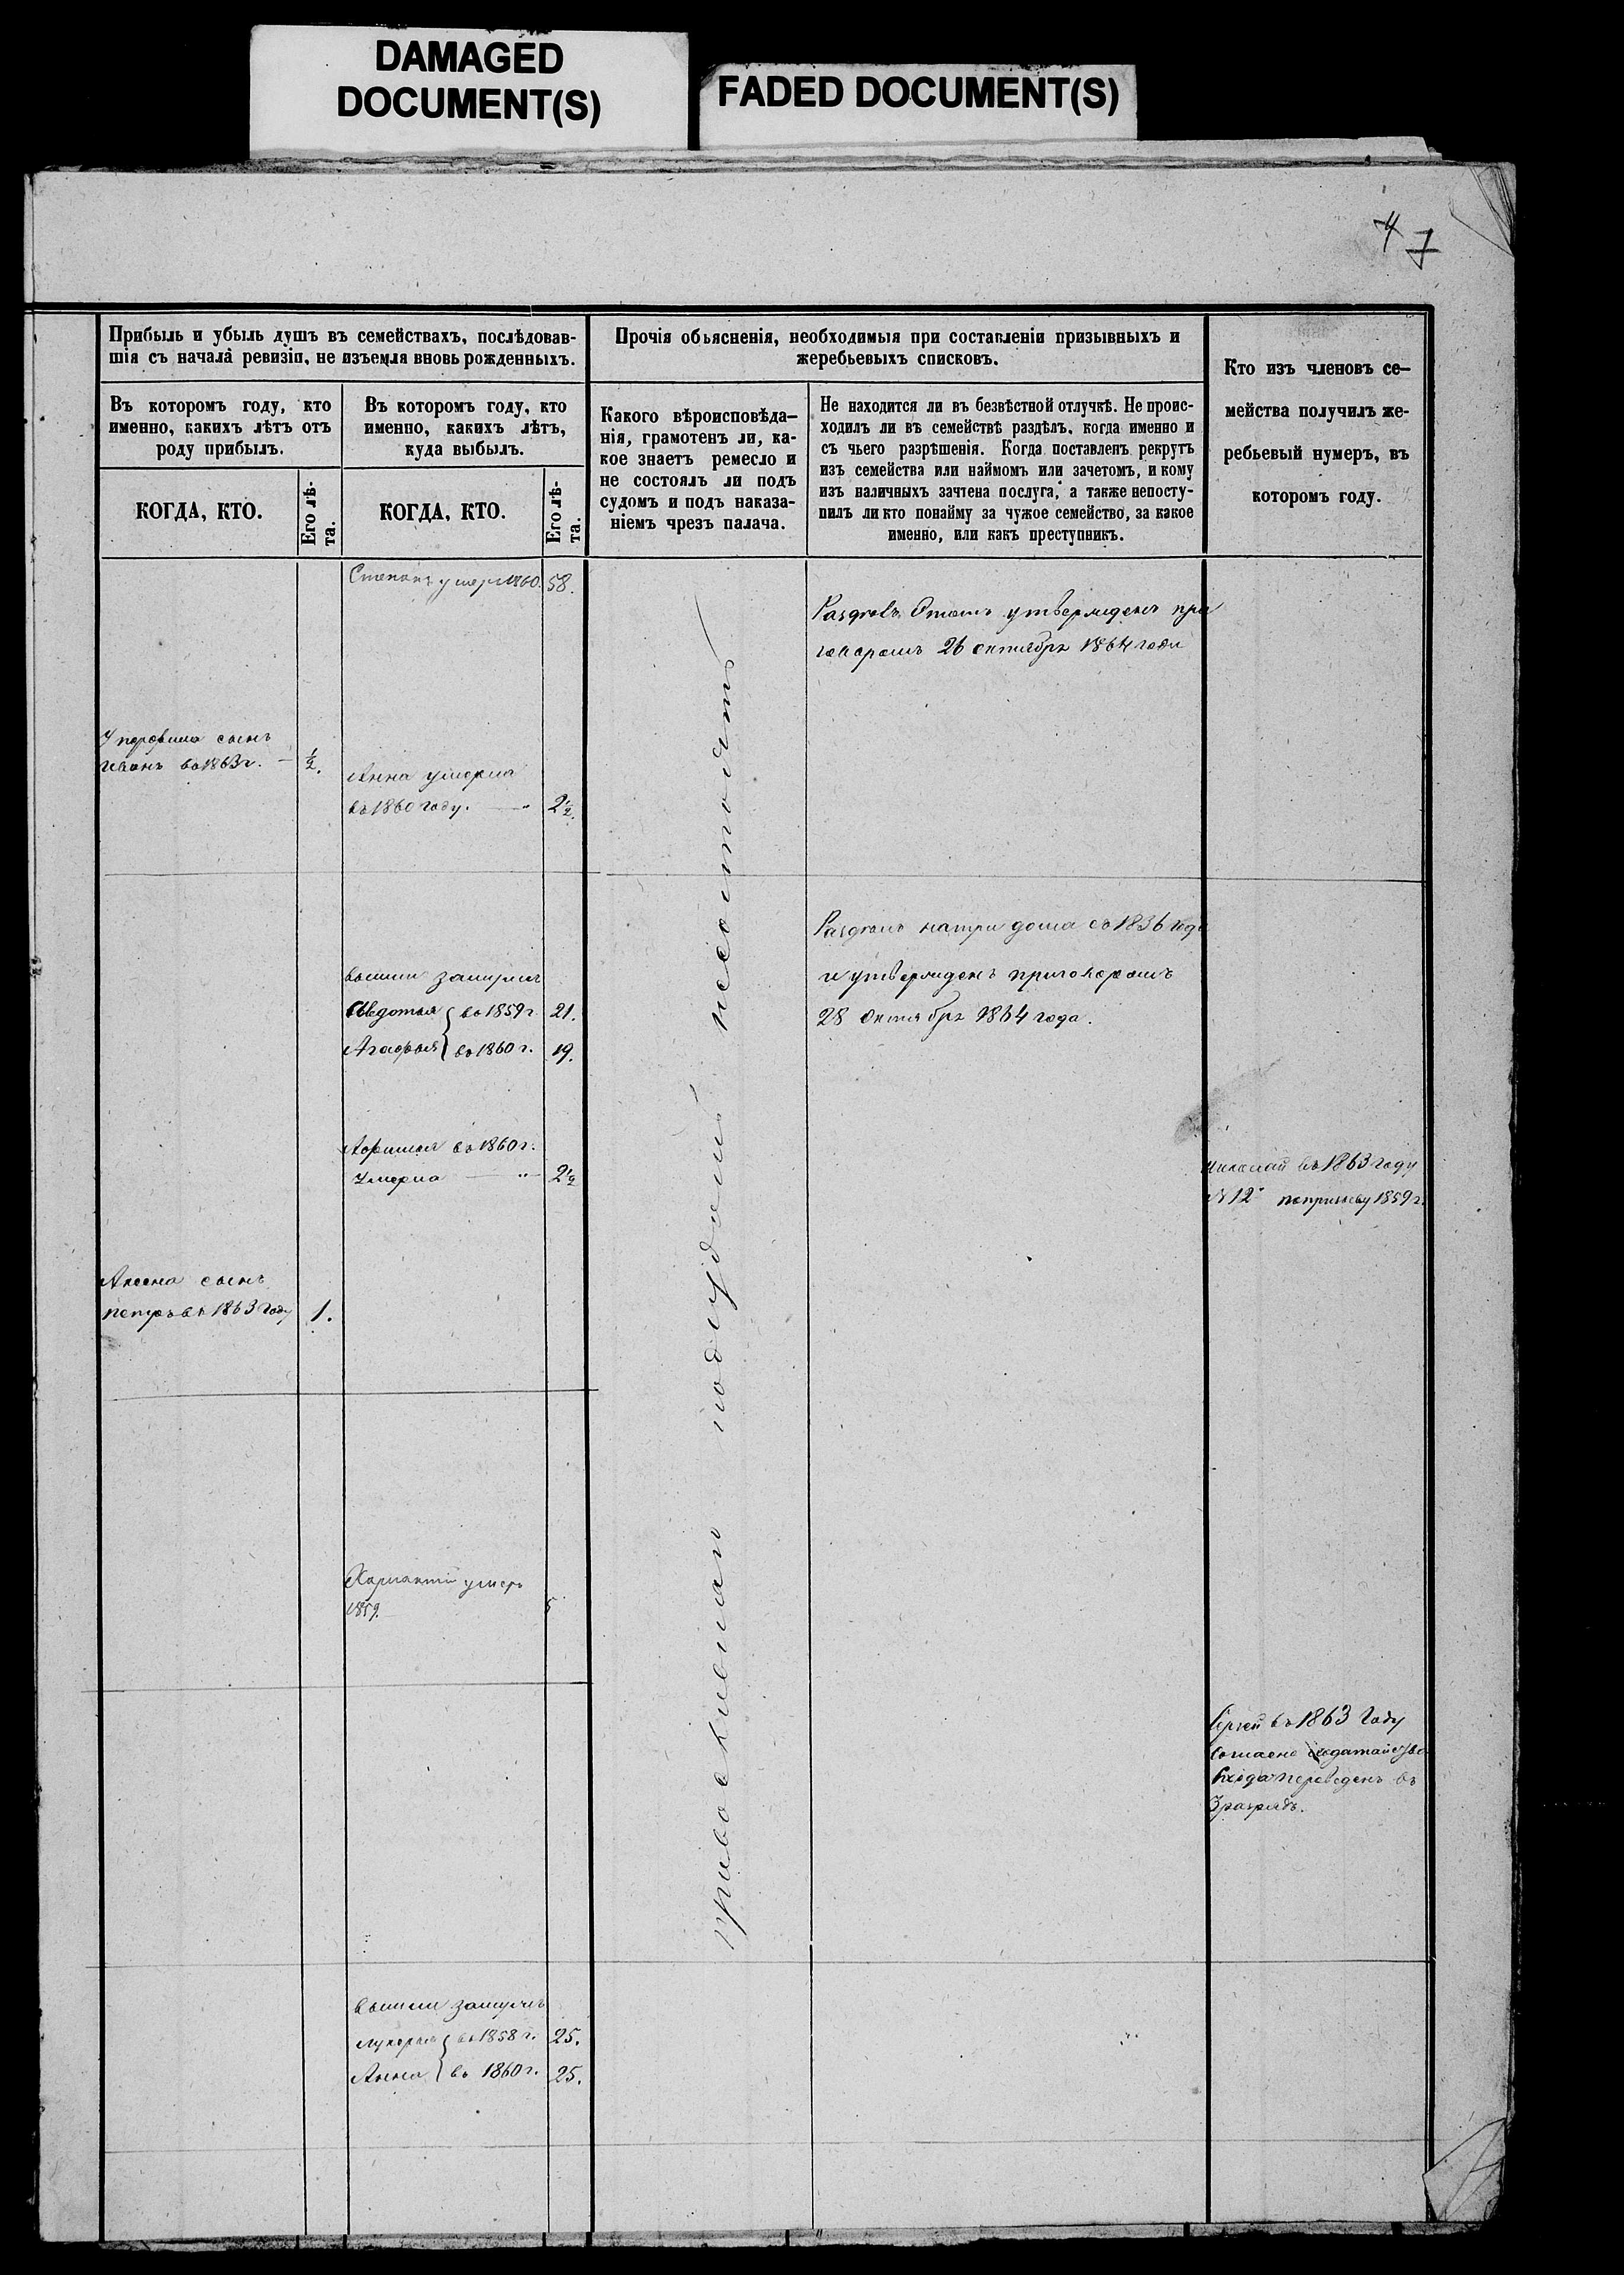 DAMAGED
DOCUMENT(S)
FADED DOCUMENT(S)
4
7
Прибыль и убыль душъ въ семействахъ, послѣдовав-
шія съ начала ревизіи, не изъемля вновь рожденныхъ.
Въ которомъ году, кто
именно, какихъ лѣтъ отъ
роду прибылъ.
КОГДА, КТО.
Его лѣ-
та.
Въ которомъ году, кто
именно, какихъ лѣтъ,
куда выбылъ.
КОГДА, КТО.
Его лѣ-
та.
Прочія обьясненія, необходимыя при составленіи призывныхъ и
жеребьевыхъ списковъ.
Какого вѣроисповѣда-
нія, грамотенъ ли, ка-
кое знаетъ ремесло и
не состоялъ ли подъ
судомъ и подъ наказа-
ніемъ чрезъ палача.
Не находится ли въ безвѣстной отлучкѣ. Не проис-
ходилъ ли въ семействѣ раздѣлъ, когда именно и
съ чьего разрѣшенія. Когда поставленъ рекрутъ
изъ семейства или наймомъ или зачетомъ, и кому
изъ наличныхъ зачтена послуга, а также непосту-
пилъ ли кто понайму за чужое семейство, за какое
именно, или какъ преступникъ.
Кто изъ членовъ се-
мейства получилъ же-
ребьевый нумеръ, въ
которомъ году.
Степанъ умеръ 1860. 58.
утвержденъ при
говоромъ 26 октября 1864 года
сынъ
Иванъ во 1863 г. — ½.
Анна умерла
въ 1860 году. — 2½.
на три дома съ 1836 года
и утвержденъ приговоромъ
28 Октября 1864 года.
вышли замужъ
Авдотья } во 1859 г. 21.
Агафья } во 1860 г. 19.
во 1860 г.
Умерла — 2½
Николай въ 1863 году
№ 12 1859 г.
сынъ
Петръ въ 1863 году 1.
умеръ
1859. 5
православнаго подсудомъ несостоятъ
Сергей въ 1863 году
переведенъ въ
3 разрядъ.
вышли замужъ
Лукерья } во 1858 г. 25.
Анна } во 1860 г. 25.